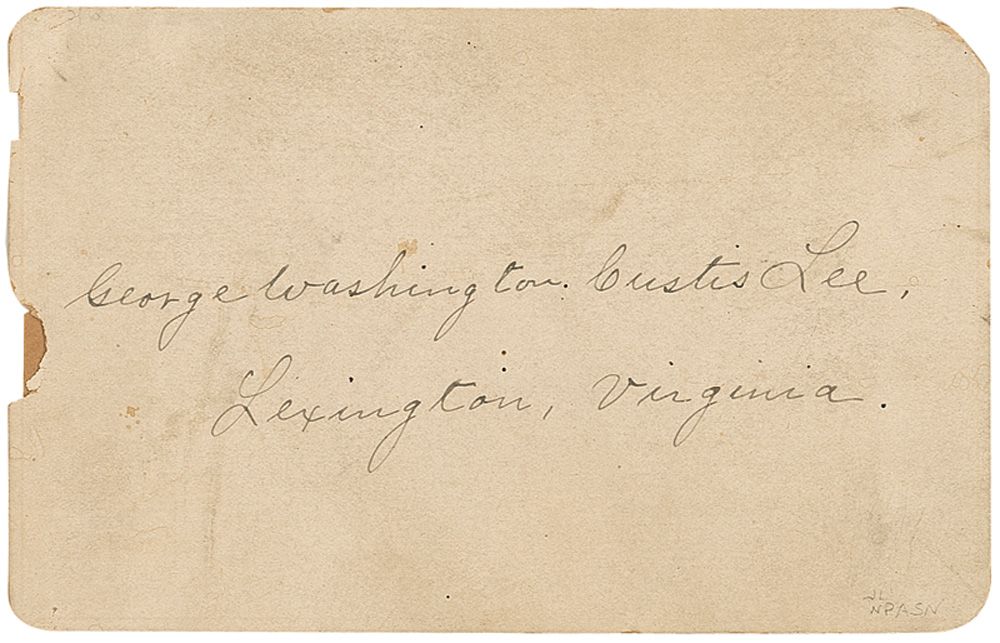 George Washington. Custis Lee,
Lexington, Virginia.
JL
NPASN